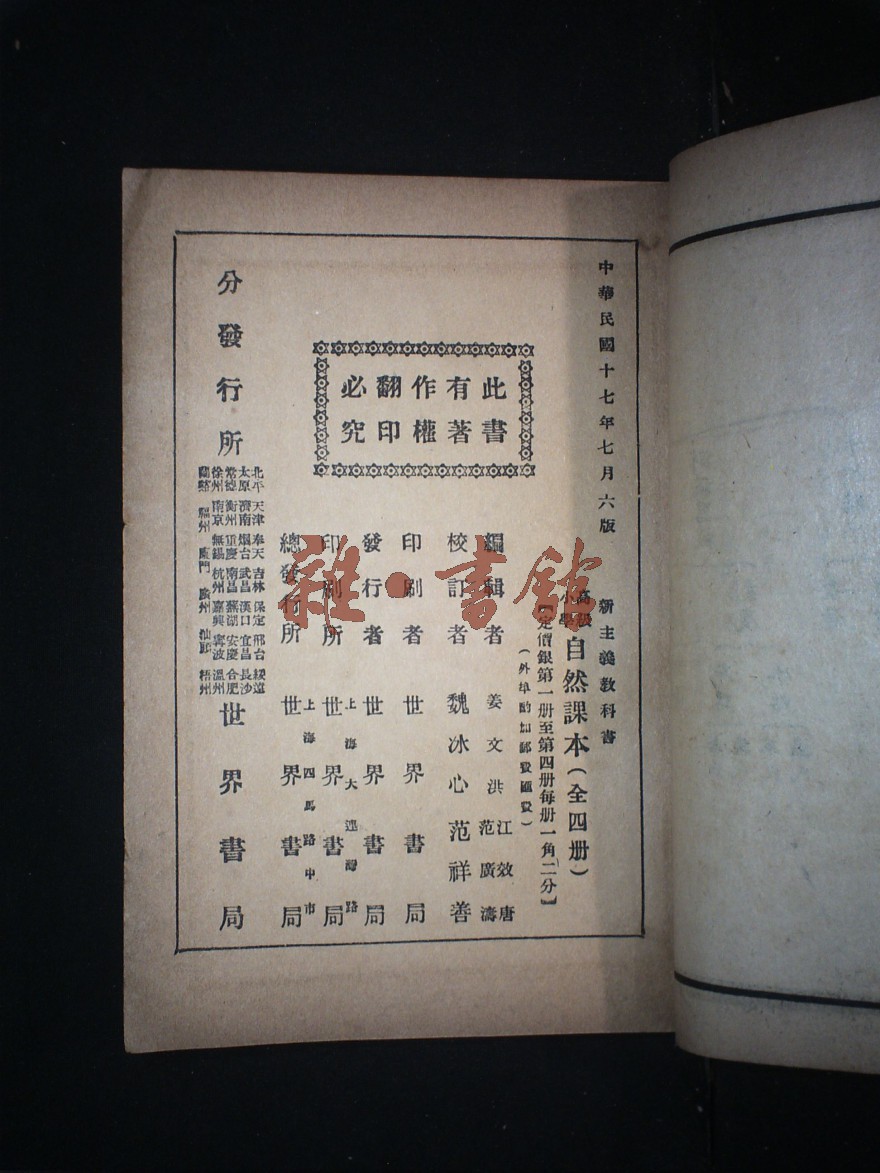 中華民國十七年七月六版
新主義教科書
高級小學
自然課本(全四册)
【定價銀第一册至第四册每册一角二分】
(外埠酌加郵費匯費)
此書
有著
作權
翻印
必究
編輯者 姜文洪 江效唐 范廣濤
校訂者 魏冰心 范祥善
印刷者 世界書局
發行者 世界書局
印刷所 上海大連灣路 世界書局
總發行所 上海四馬路中市 世界書局
分發行所
北平 天津 奉天 吉林 保定 邢台 綏遠
太原 濟南 烟台 武昌 漢口 宜昌 長沙
常德 衡州 重慶 南昌 蕪湖 安慶 合肥
徐州 南京 無錫 杭州 嘉興 寧波 溫州
蘭谿 福州 廈門 廣州 汕頭 梧州
世界書局
雜·書館